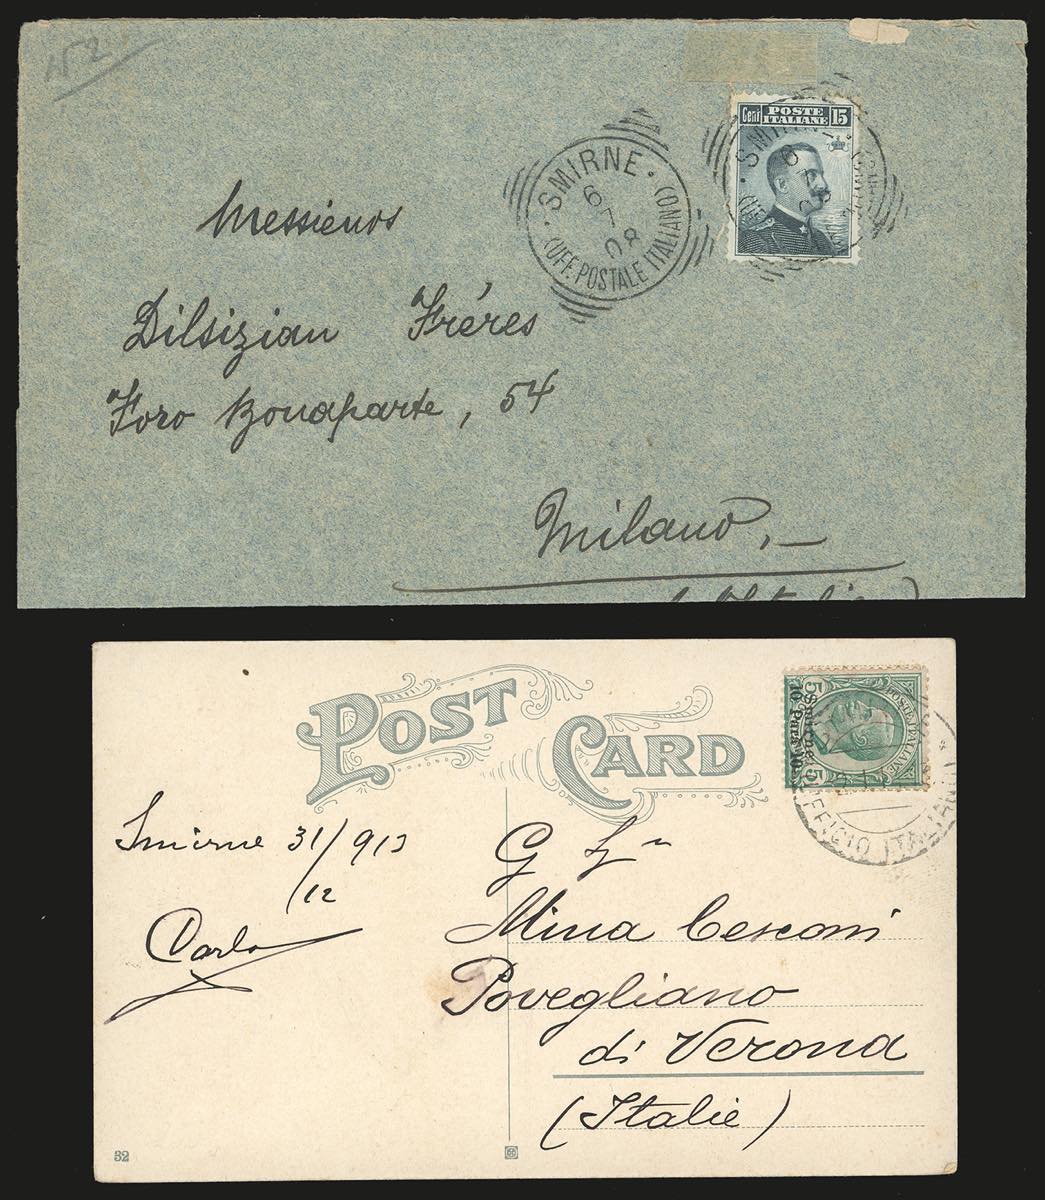 Cent POSTE ITALIANE 15
· SMIRNE ·
6
7
08
(UFF. POSTALE ITALIANO)
Messieurs
Dilsizian Fréres
Foro Bonaparte, 54
Milano, –
POST CARD
POSTE ITALIANE
5 5
Smirne
10 Para 10
UFFICIO ITALIANO
Smirne 31/913
/12
Carlo
Mina Cesconi
Povegliano
di Verona
(Italie)
32